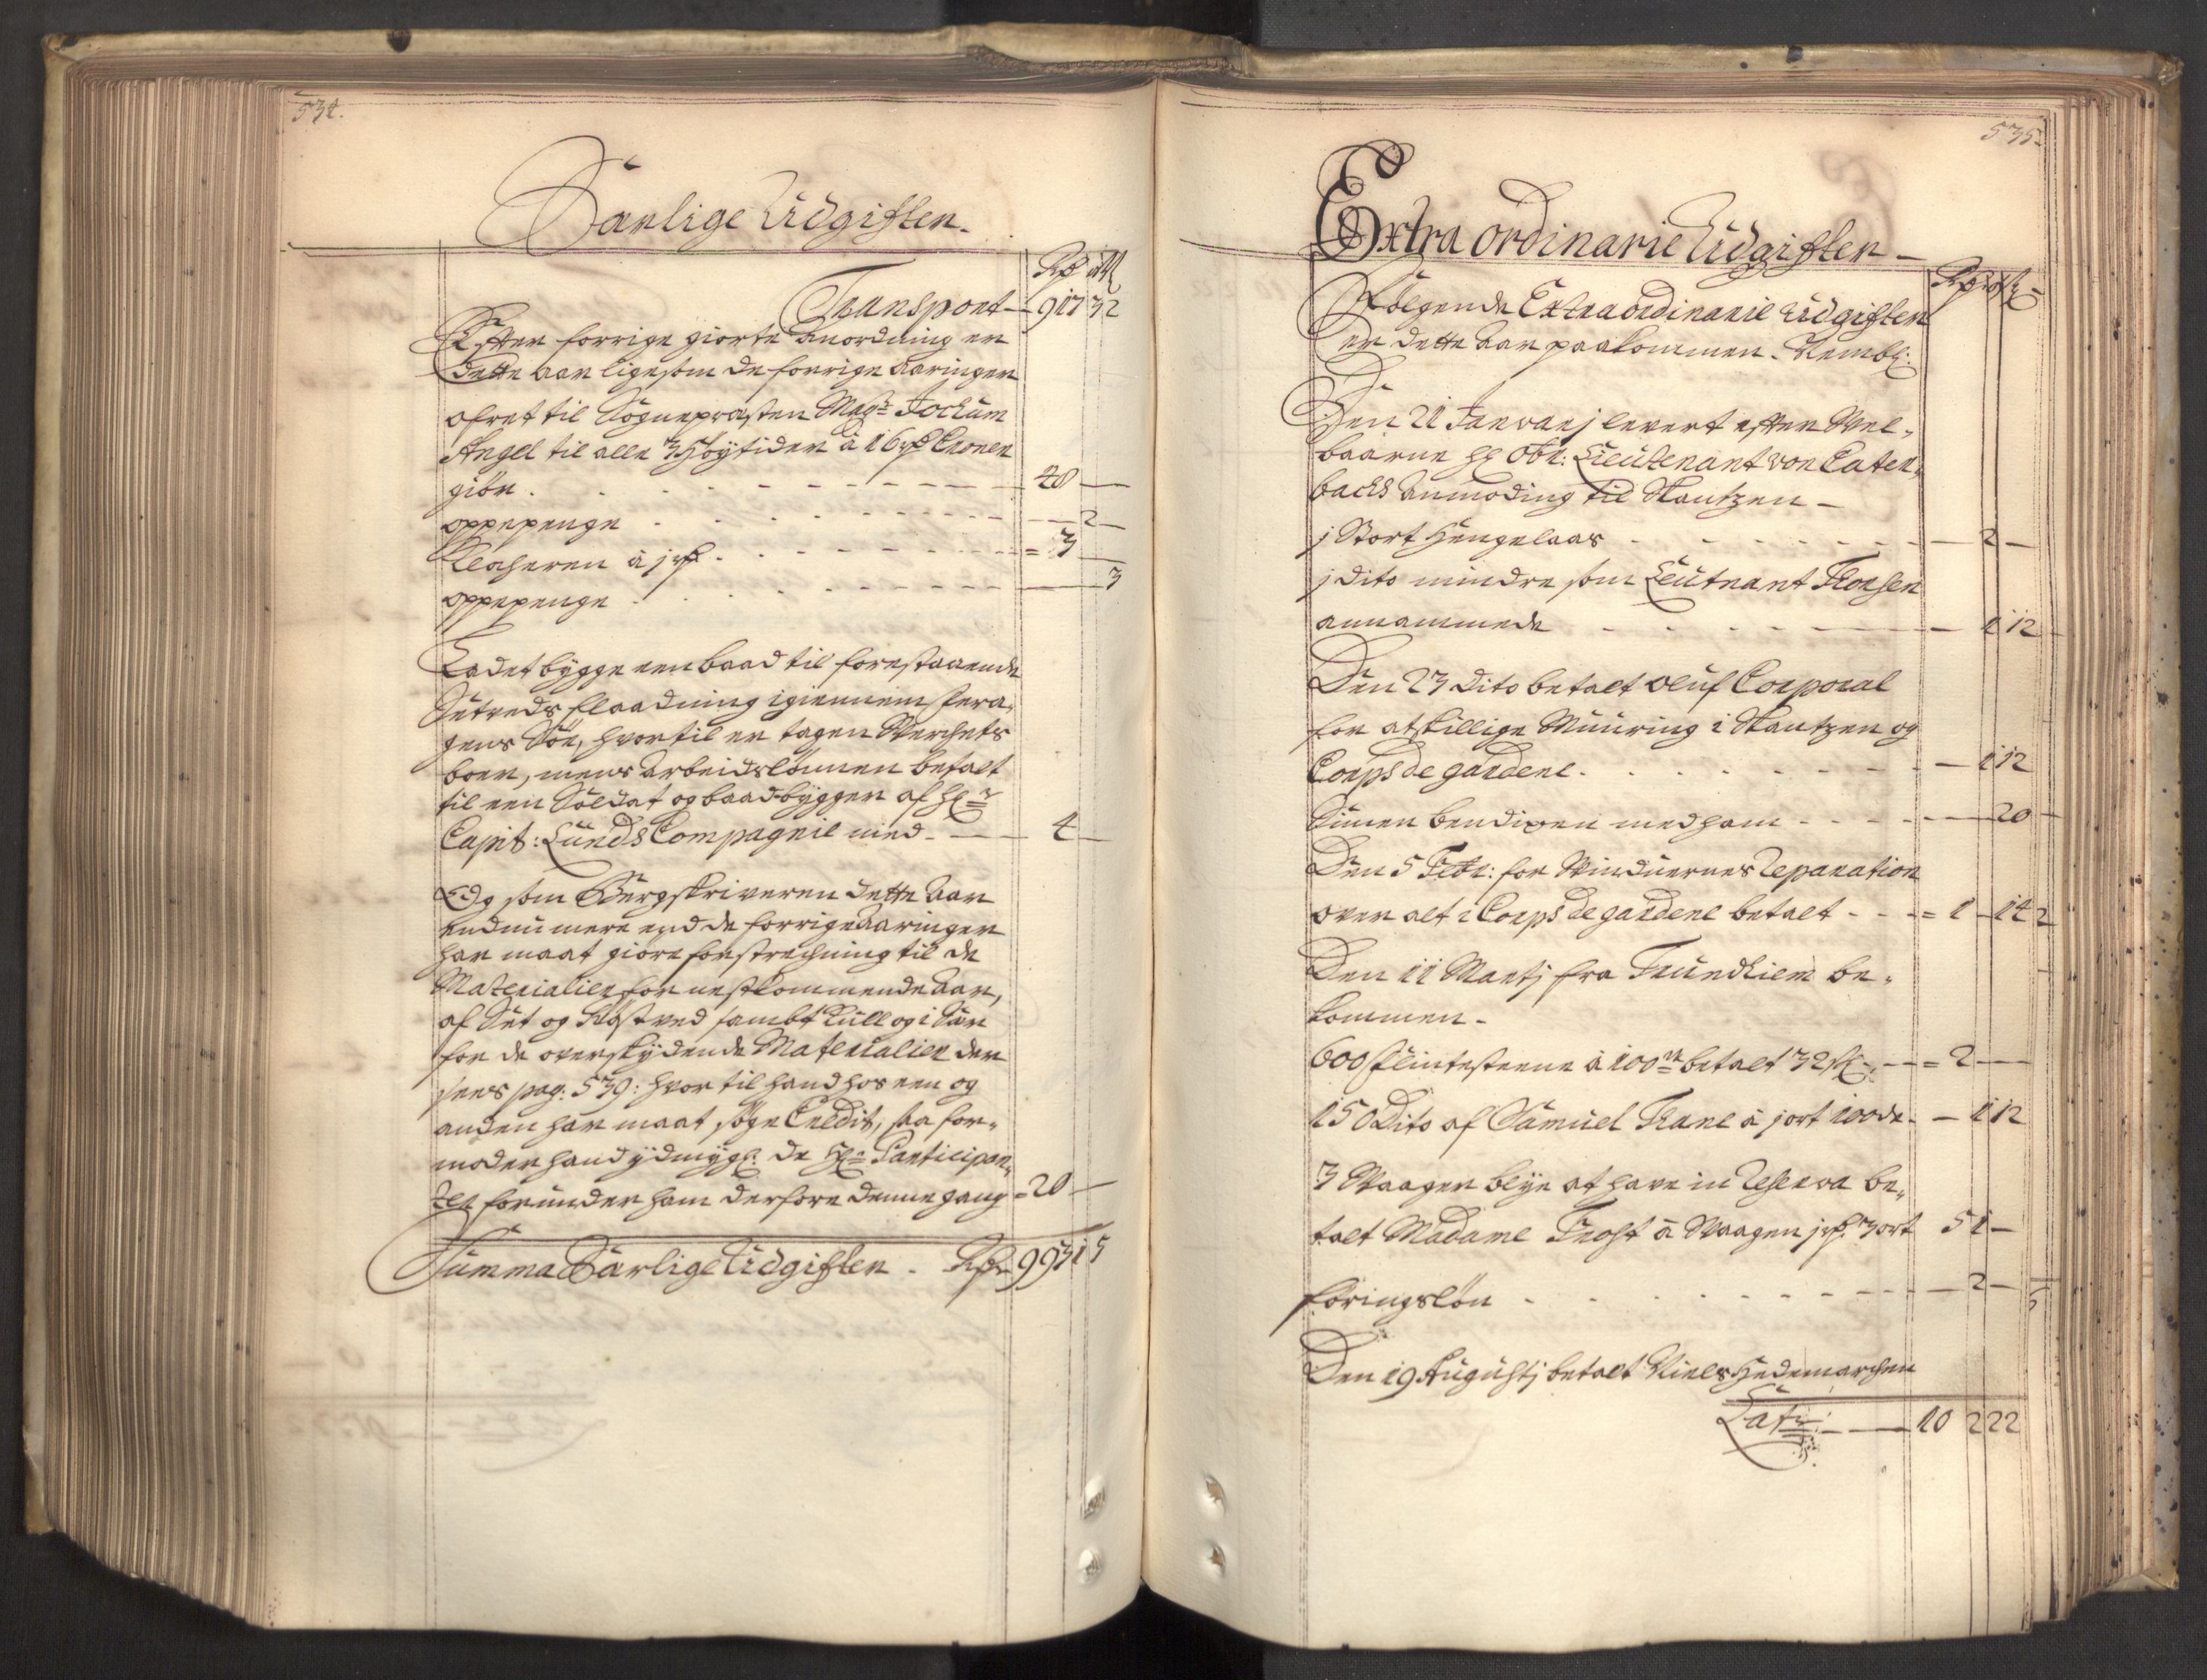 534.
Særlige Udgifter.
Rdr ort
Transport — 917 3 2
Efter forrige giorte anordning er
dette aar ligesom de forrige aaringer
ofret til Sognepræsten Magr Jochum
Angel til alle 3 Høytider à 16 rdr Croner
giør . 48 —
oppepenge . 2 —
Klocheren à j rdr . = 3
oppepenge . 3
Ladet bygge een baad til forestaaende
Sætveds flaadning igiennem fera,
gens Søe, hvortil er tagen Werchets
boer, mens arbeidslønnen betalt
til een Soldat og baadbygger af Hr
Capit: Lunds Compagnie med — 4 —
Og som Bergskriveren dette aar
endnu mere end de forrige aaringer
har maat giøre forstrechning til de
Materialier for nestkommende aar,
af Sæt og Røstved sambt Kull og i Sær
for de overskydende Materialier der
sees pag: 539: hvortil hand hos een og
anden har maat søge Credit, saa for-
moder hand ydmygl. de Hr Participan,
ter forunder ham derfore denne gang = 20 —
Summa Særlige Udgifter . Rdr 993 1 5
535.
Extra ordinarie Udgifter —
Rdr ort s
Følgende Extraordinarie Udgifter
er dette aar paakommen. Nembl:
Den 21 Januarj levert efter Vel-
baarne Hr Obr: Lieutenant von Caten,
bachs anmoding til Skantzen —
j Stort Hengelaas — 2 —
j dito mindre som Leutnant Thorsen
annammede — 1 12
Den 23 dito betalt Oluf Corporal
for atskillige Muuring i Skantzen og
Corps de gardene . — 1 12
Simen bendixen med ham — 20
Den 5 Febr: for Vinduernes Reparation
over alt i Corps de gardene betalt - = 1 — 14
Den 11 Martj fra Trundhiem be-
kommen —
600 flintesteene à 100de betalt 32 s — = 2 —
150 Dito af Samuel Thane à j ort 100de . — 1 12
3 Waager blye at have in Reserva be,
talt Madame Frost à Waagen j rdr 3 ort 5 1 —
føringsløn — 2 —
Den 19 Augustj betalt Niels Hedemarchen
Latr: — 10 2 22